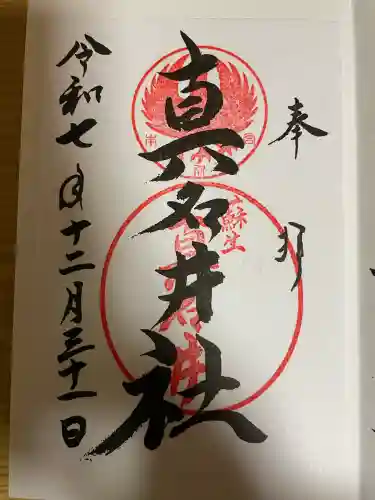 奉拝
真名井社
蘇生
令和七年十二月三十一日